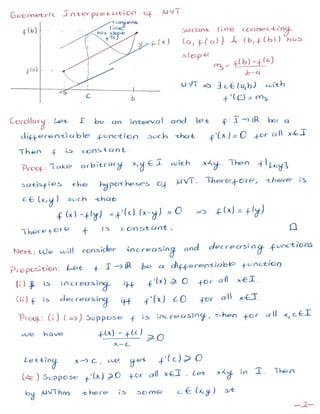 Geometric Interpretation of MVT
tangent
line
has slope
f'(c)
f(b)
y=f(x)
f(a)
a
c
b
secant line connecting
(a, f(a)) & (b, f(b)) has
slope
m_s = f(b)-f(a)
b-a
MVT => ∃c∈(a,b) with
f'(c) = m_s
Corollary: Let I be an interval and let f: I→ℝ be a
differentiable function such that f'(x)=0 for all x∈I
Then f is constant.
Proof: Take arbitrary x,y∈I with x<y. Then f|[x,y]
satisfies the hypotheses of MVT. Therefore, there is
c∈(x,y) such that
f(x)-f(y) = f'(c)(x-y) = 0 => f(x)=f(y)
Therefore f is constant. □
Next: We will consider increasing and decreasing functions
Proposition: Let f: I→ℝ be a differentiable function
(i) f is increasing iff f'(x) ≥ 0 for all x∈I.
(ii) f is decreasing iff f'(x) ≤ 0 for all x∈I.
Proof: (i) (=>) Suppose f is increasing, then for all x,c∈I
we have f(x)-f(c) ≥ 0.
x-c
Letting x→c, we get f'(c) ≥ 0
(<=) Suppose f'(x) ≥ 0 for all x∈I. Let x<y in I. Then
by MVThm there is some c∈(x,y) st
-2-